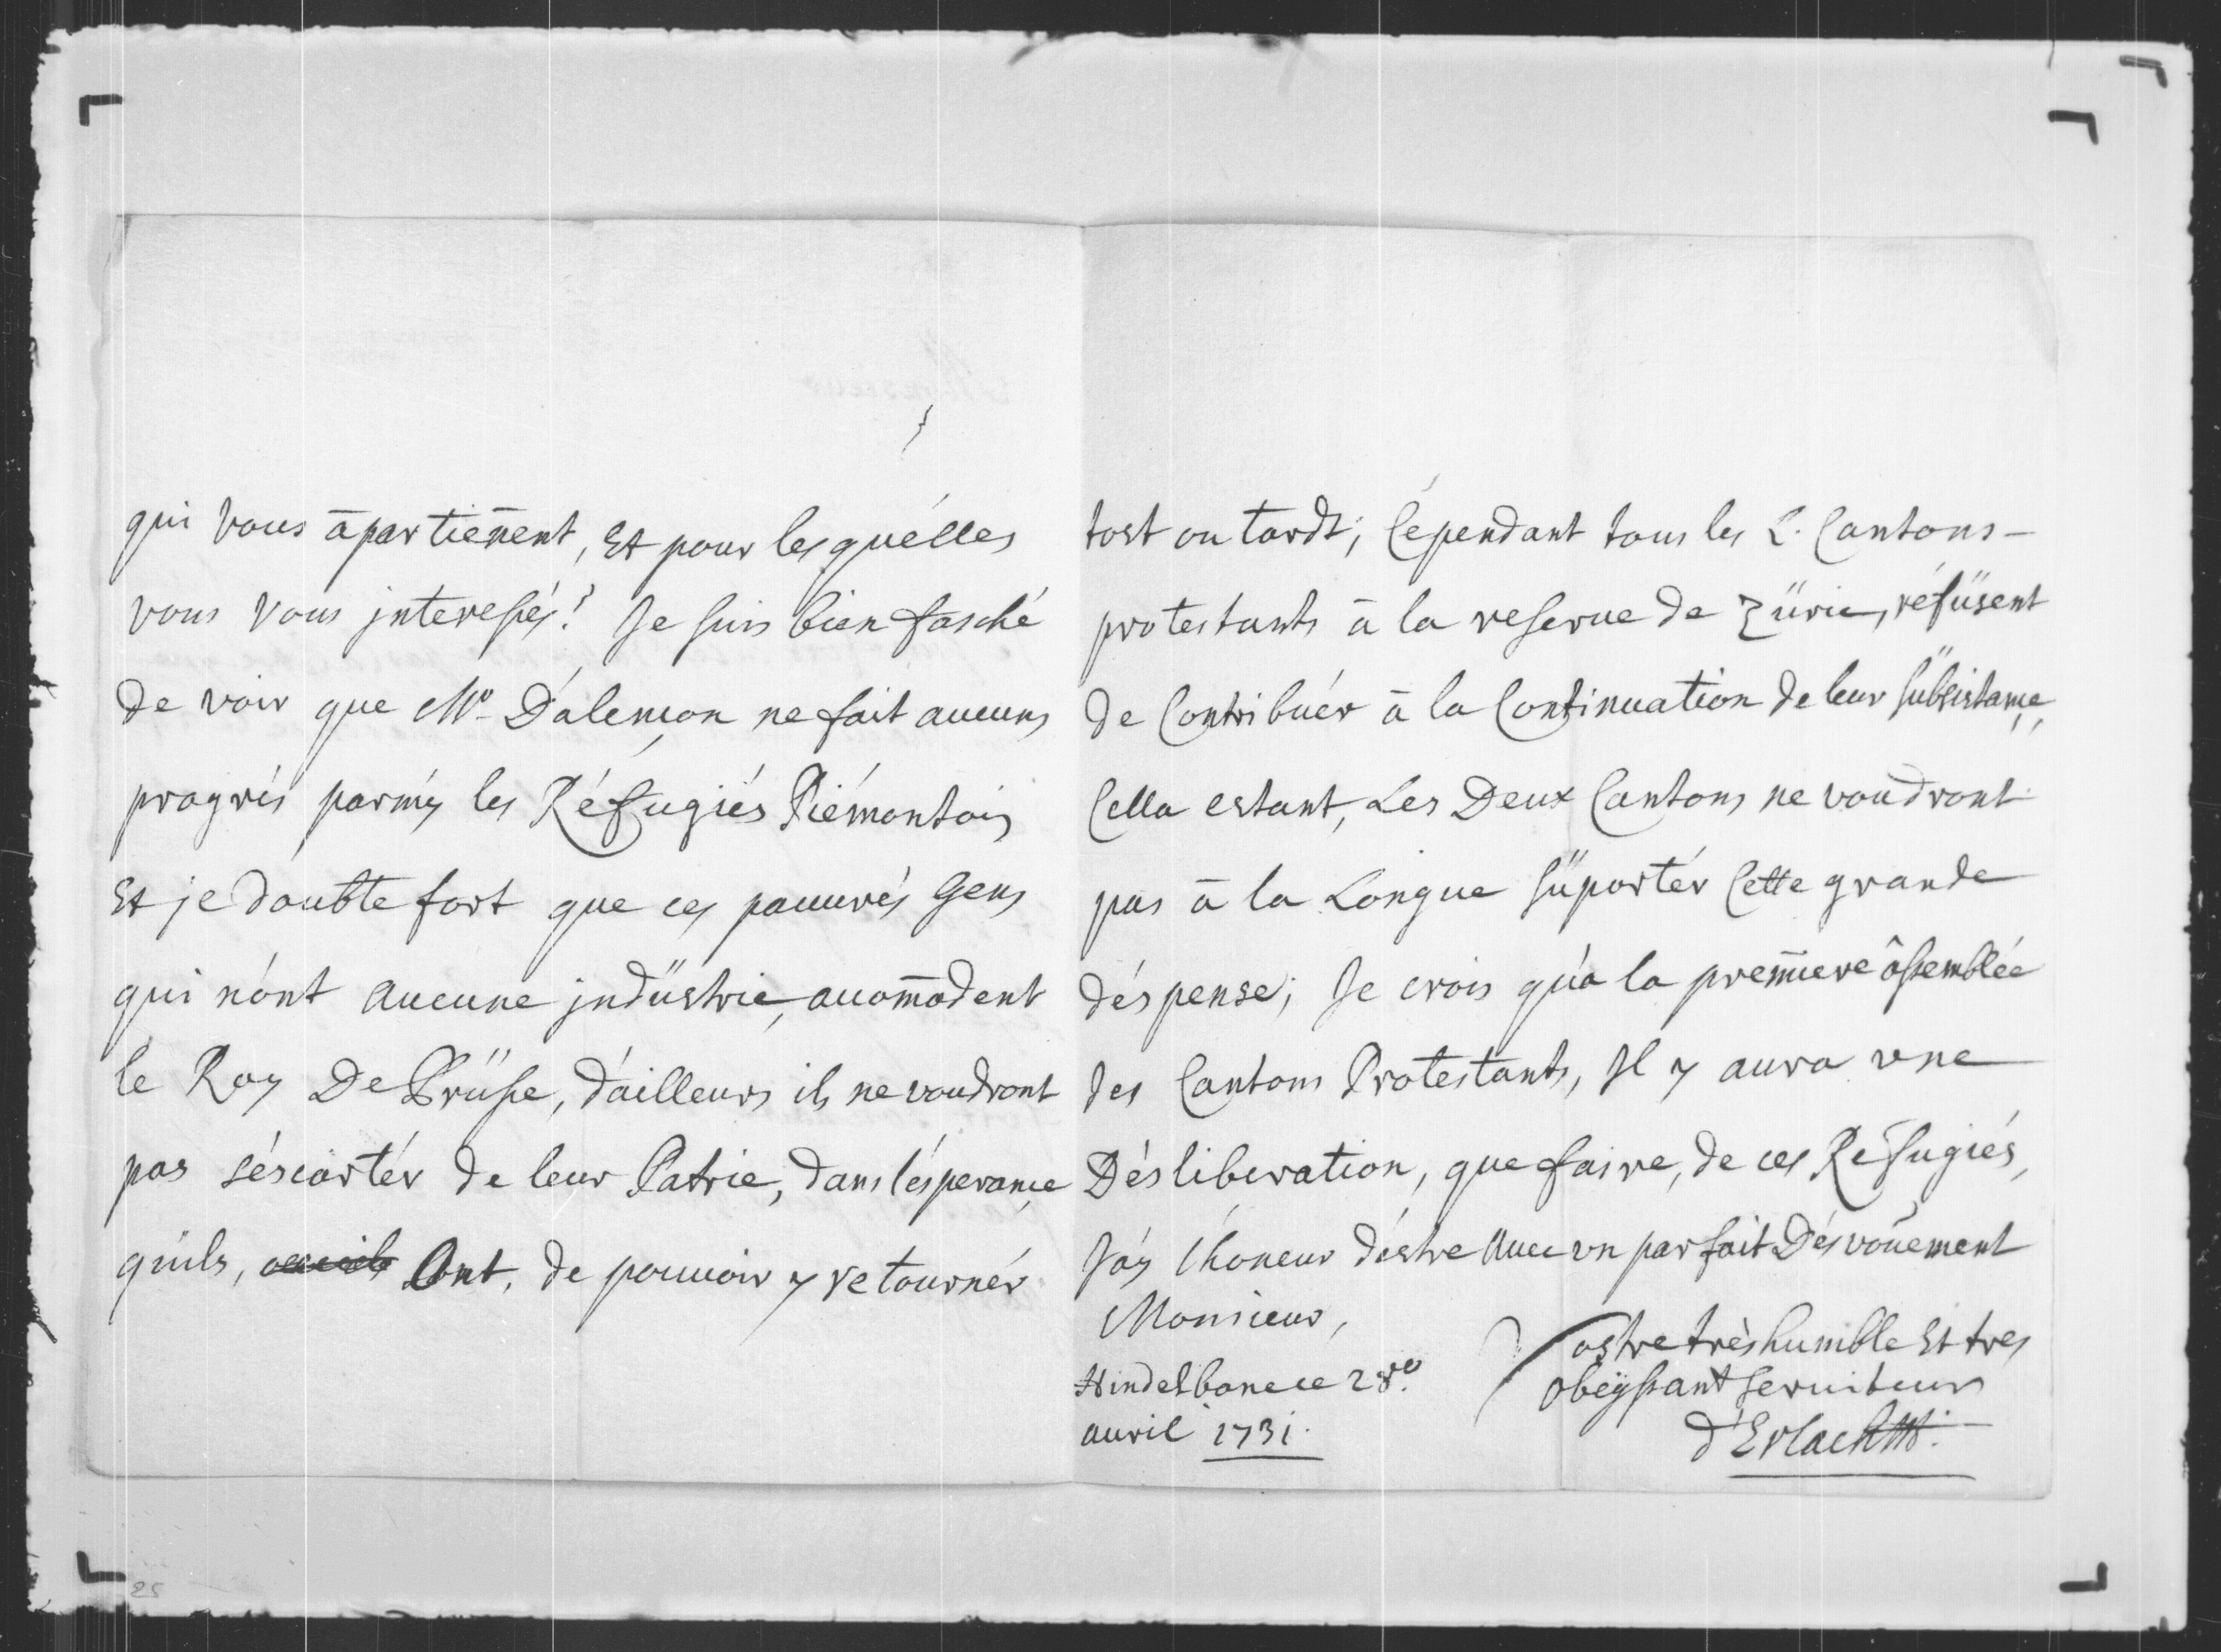 qui vous āpartiēnent, Et pour lesquélles
vous vous jnteressés! Je suis bien fasché
de voir que Mr. D'alençon ne fait aucuns
progrés parmÿ les Réfugiés Piémontois
Et je doubte fort que ces pauurés Gens
qui n'ónt aucune jndüstrie, acomōdent
le Roy De Prüsse, d'ailleurs ils ne voudront
pas s'éscartér de leur Patrie, dans l'ésperançe
qu'ils, Ont, de pouuoir y retournér
tost ou tardt; Cépendant tous les L. Cantons –
protestants ā la reserue de Züric, réfüsent
de Contribuér ā la Continuation de leur sübsistançe,
Cella estant, Les Deux Cantons ne voudront
pas ā la Longue süportér Cette grande
déspense; Je crois qu'a la premiere âssemblée
des Cantons Protestants, Jl y aura vne
Désliberation, que faire, de ces Réfugiés,
J'áy l'honeur d'éstre Auec vn parfait Désvoūement
Monsieur,
Vostre très humble Et tres
Hindelbanc ce 28e.
obeÿssant seruiteur
auril 1731.
d'Erlach
25